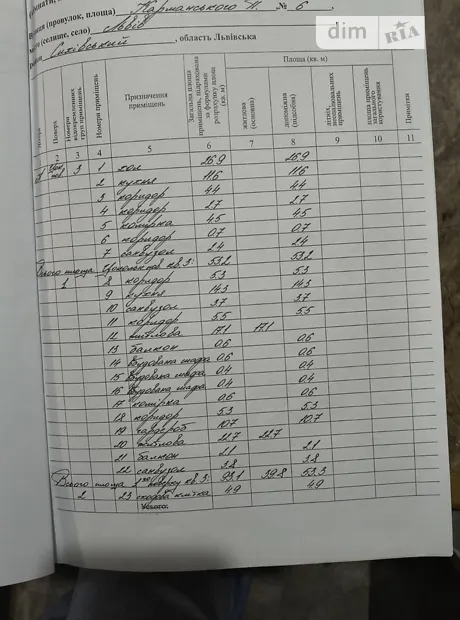 Вулиця (провулок, площа) Карманського П. № 6
Місто (селище, село) Львів
Район Сихівський, область Львівська
dim RIA
Номери
Поверх
Номери відокремлених груп приміщень
Номери приміщень
Призначення приміщень
Загальна площа приміщень, підрахована за формулами розрахунку площі (кв. м)
Площа (кв. м)
житлова (основна)
допоміжна (підсобна)
площа приміщень загального користування
Примітки
2 3 4 5 6 7 8 9 10 11
3 1 хол 26.9 26.9
2 кухня 11.6 11.6
3 коридор 4.4 4.4
4 коридор 2.7 2.7
5 комірка 4.5 4.5
6 коридор 0.7 0.7
7 санвузол 2.4 2.4
Всього площа цоколь. пов. кв. 3: 53.2 53.2
1 8 коридор 5.3 5.3
9 кухня 14.3 14.3
10 санвузол 3.7 3.7
11 коридор 5.5 5.5
12 житлова 17.1 17.1
13 балкон 0.6 0.6
14 Вбудована шафа 0.6 0.6
15 Вбудована шафа 0.4 0.4
16 Вбудована шафа 0.4 0.4
17 комірка 0.6 0.6
18 коридор 5.3 5.3
19 гардероб 10.7 10.7
20 житлова 22.7 22.7
21 балкон 2.1 2.1
22 санвузол 3.8 3.8
Всього площа 1го поверху кв. 3: 93.1 39.8 53.3
2 23 сходова клітка 4.9 4.9
Усього: